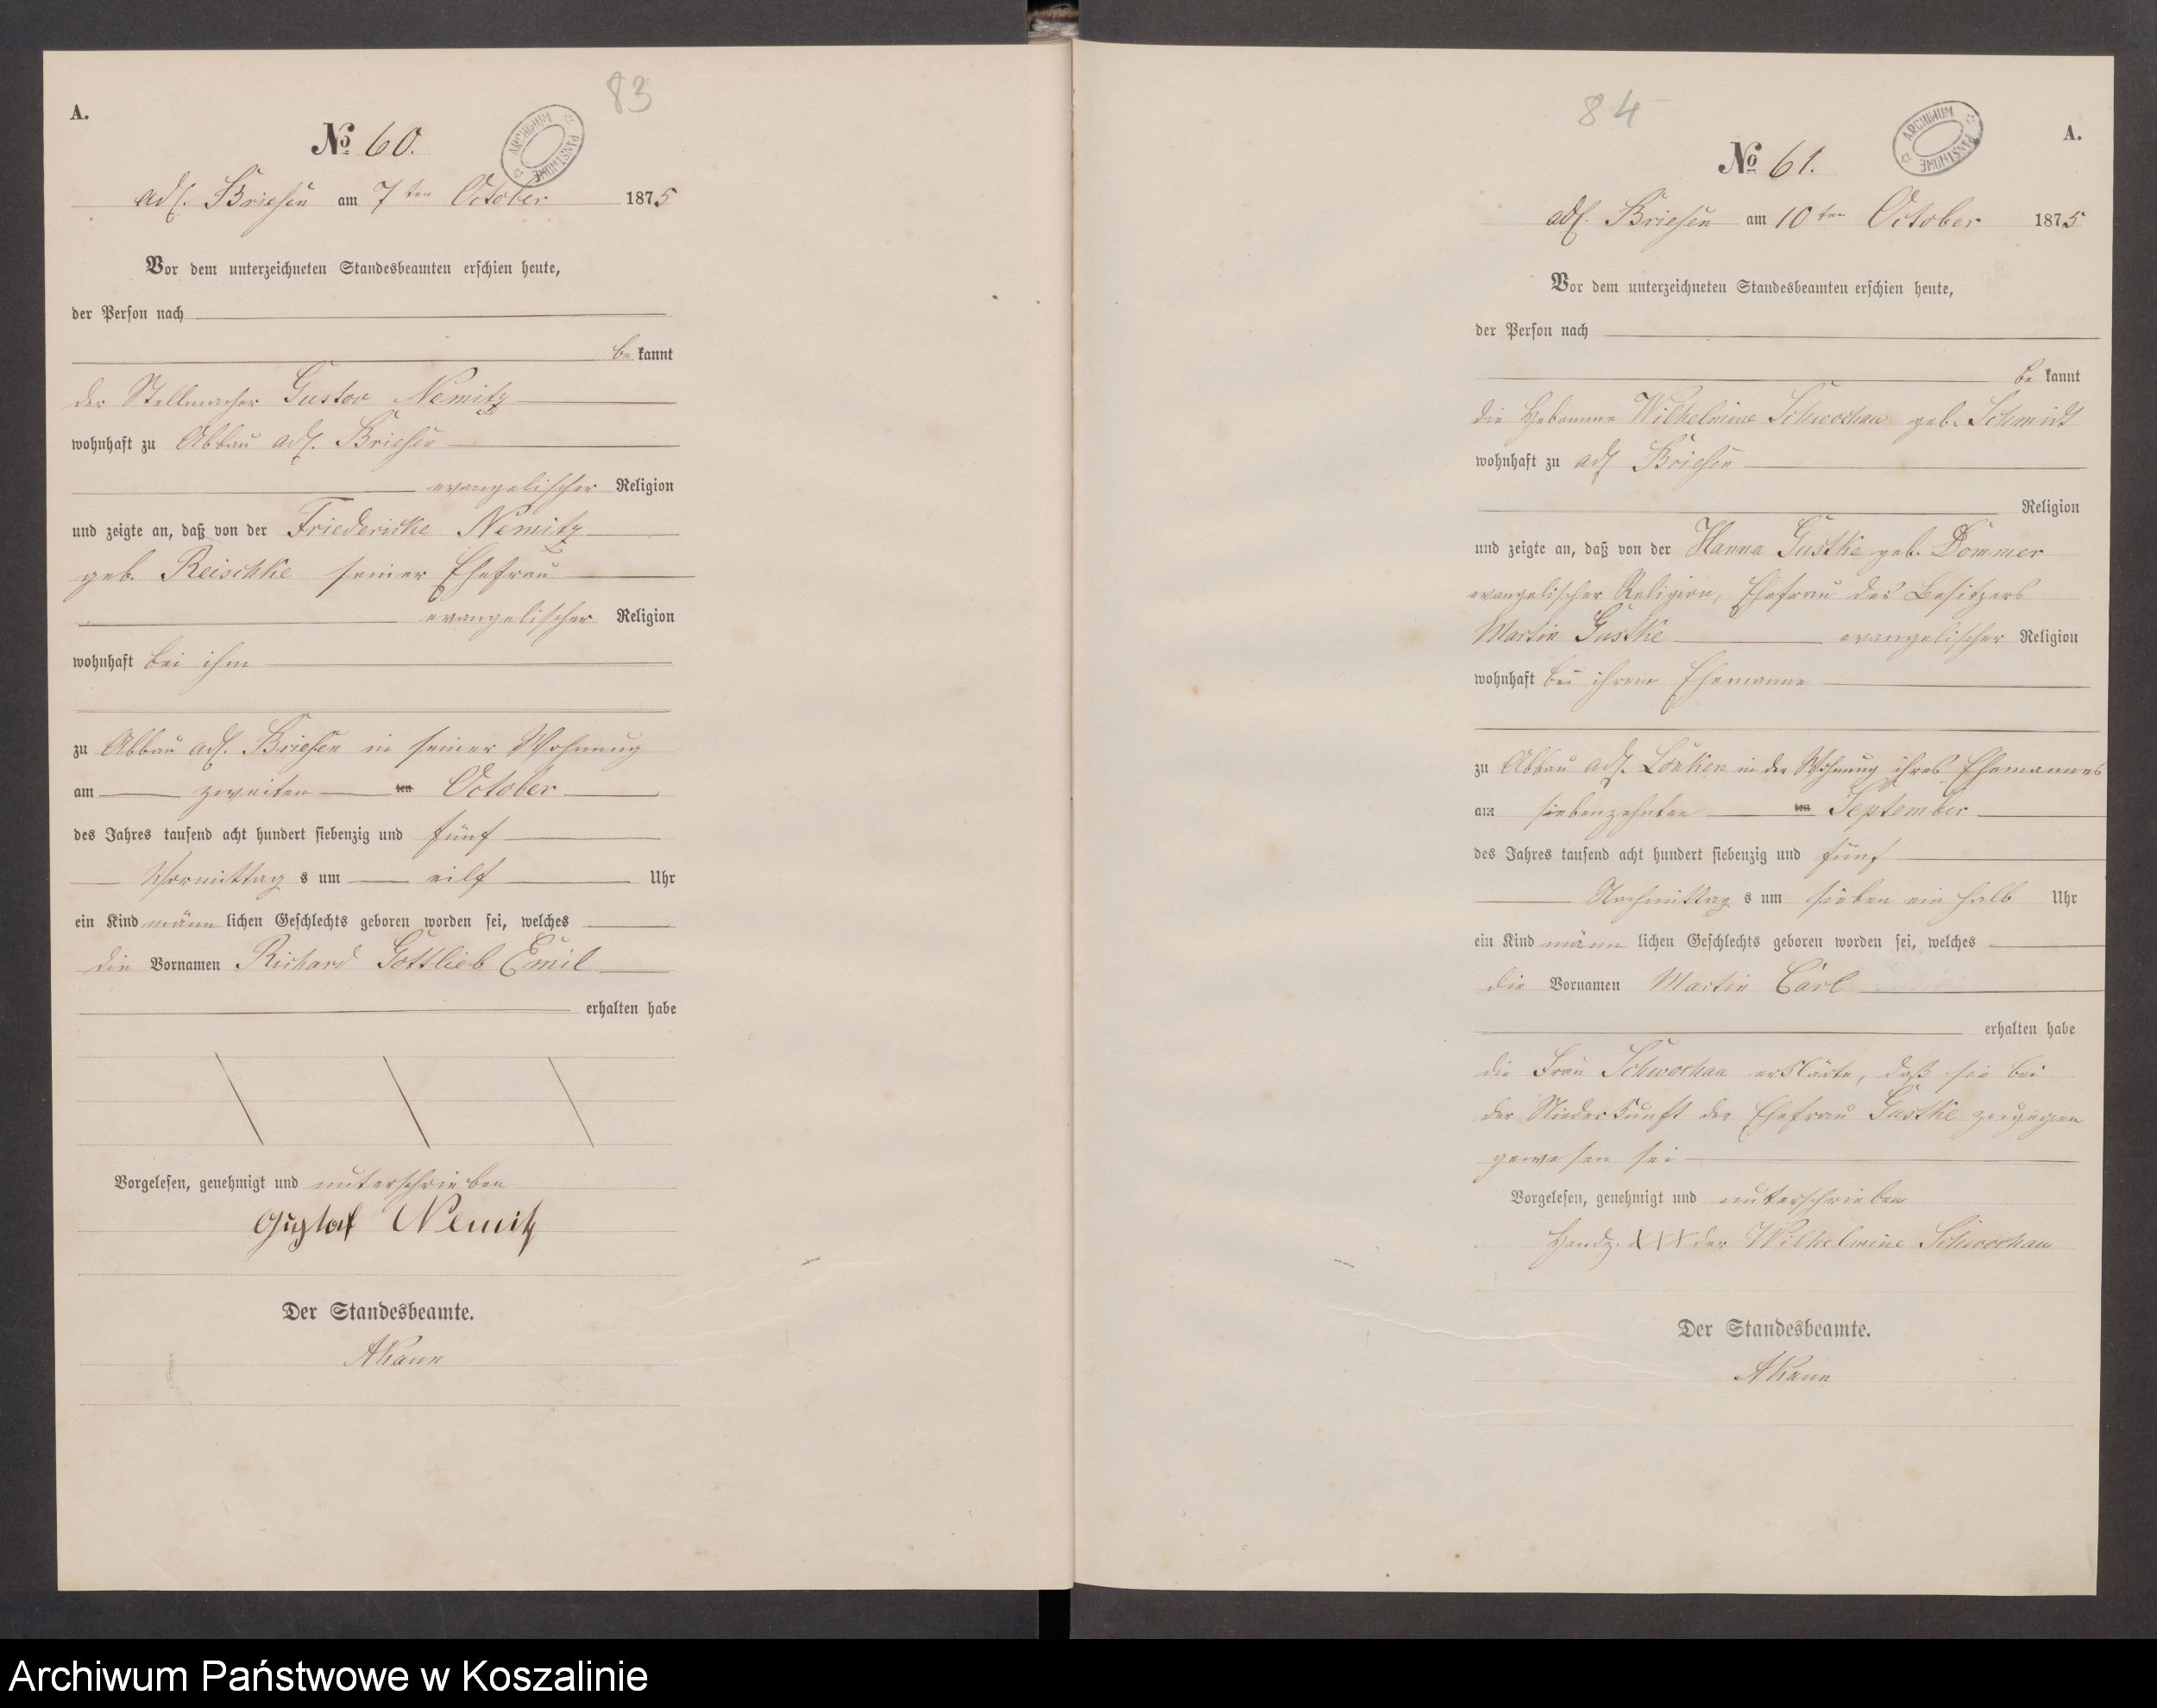 A.
83
ARCHIWUM PAŃSTWOWE
№ 60.
adl. Briesen am 7ten October 1875
Vor dem unterzeichneten Standesbeamten erschien heute,
der Person nach
be kannt
der Stellmacher Gustav Nemitz
wohnhaft zu Abbau adl. Briesen
evangelischer Religion
und zeigte an, daß von der Friedericke Nemitz
geb. Reischke seiner Ehefrau
evangelischer Religion
wohnhaft bei ihm
zu Abbau adl. Briesen in seiner Wohnung
am zweiten ten October
des Jahres tausend acht hundert siebenzig und fünf
Vormittag s um eilf Uhr
ein Kind männ lichen Geschlechts geboren worden sei, welches
die Vornamen Richard Gottlieb Emil
erhalten habe
Vorgelesen, genehmigt und unterschrieben
Gustaf Nemitz
Der Standesbeamte.
84
ARCHIWUM PAŃSTWOWE
A.
№ 61.
adl. Briesen am 10ten October 1875
Vor dem unterzeichneten Standesbeamten erschien heute,
der Person nach
be kannt
die Hebamme Wilhelmine Schwochau geb. Schmidt
wohnhaft zu adl Briesen
Religion
und zeigte an, daß von der Hanna Gustke geb. Dommer
evangelischer Religion, Ehefrau des Besitzers
Martin Gustke evangelischer Religion
wohnhaft bei ihrem Ehemanne
zu Abbau adl. in der Wohnung ihres Ehemannes
am siebenzehnten ten September
des Jahres tausend acht hundert siebenzig und fünf
Nachmittag s um sieben ein halb Uhr
ein Kind männ lichen Geschlechts geboren worden sei, welches
die Vornamen Martin Carl
erhalten habe
die Frau Schwochau erklärte, daß sie bei
der Niederkunft der Ehefrau Gustke zugegen
gewesen sei
Vorgelesen, genehmigt und unterschrieben
Handz. XXX der Wilhelmine Schwochau
Der Standesbeamte.
Archiwum Państwowe w Koszalinie